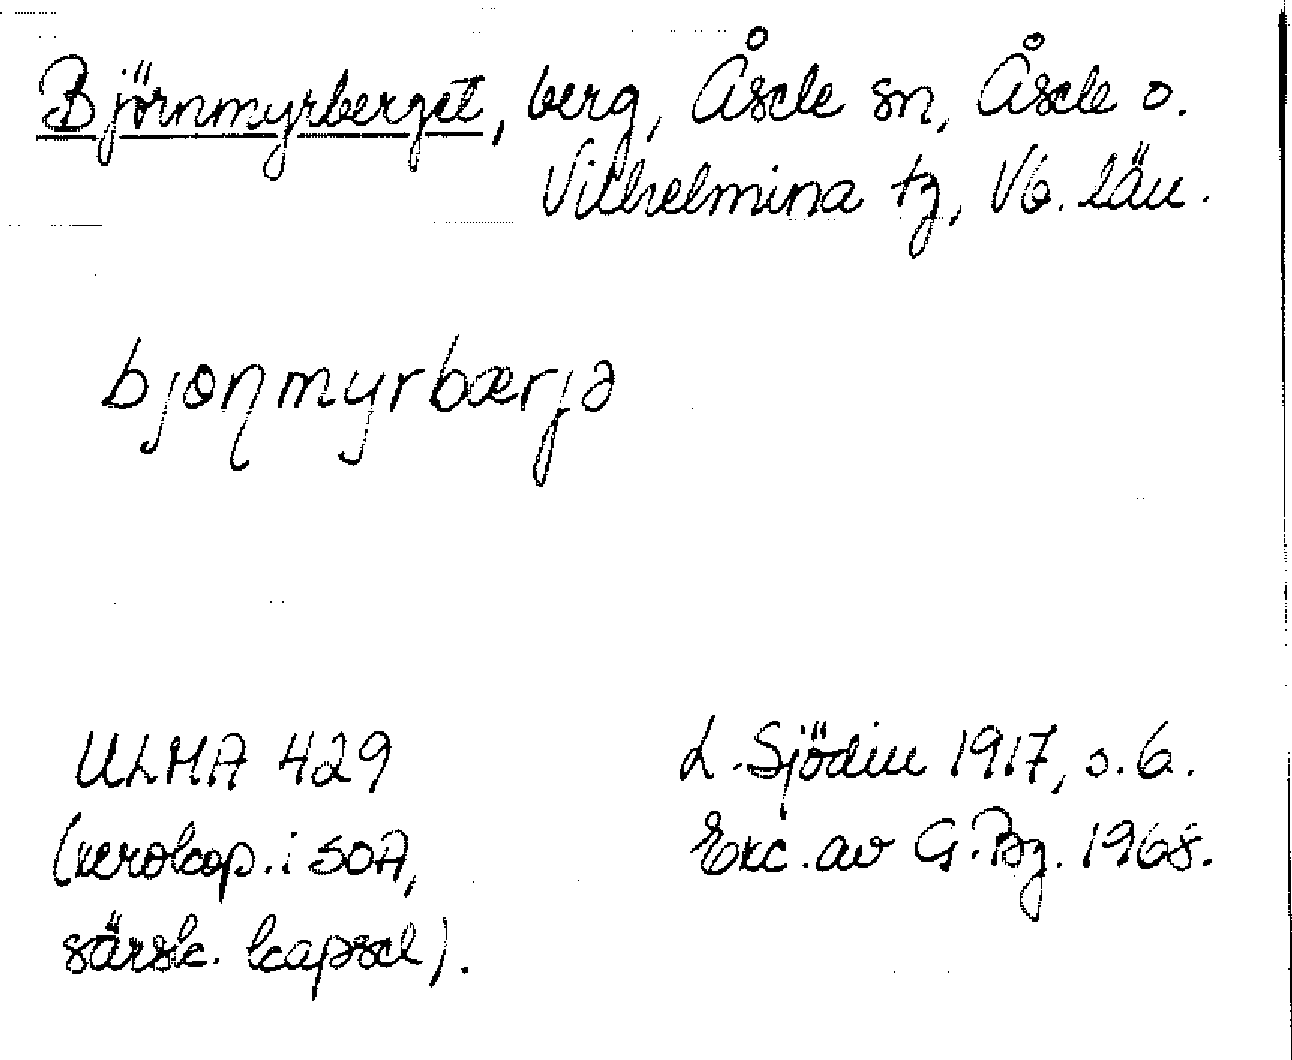 Björnmyrberget, berg, Åsele sn, Åsele o.
Vilhelmina tg, Vb. län.
bjøɳmyrbærjə
ULMA 429
(xerokop. i SOA,
särsk. kapsel).
L. Sjödin 1917, s. 6.
Exc. av G. Bg. 1968.